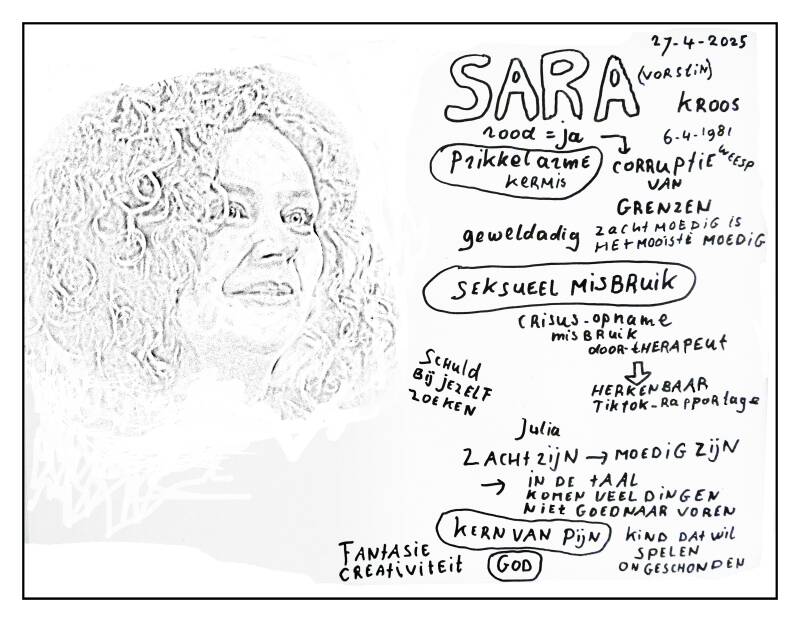 27-4-2025
SARA (VORSTIN)
KROOS
rood = ja
6-4-1981
Prikkelarme
KERMIS
CORRUPTIE WEESP
VAN
GRENZEN
geweldadig
ZACHTMOEDIG IS
HET MOOISTE MOEDIG
SEKSUEEL MISBRUIK
CRISUS-OPNAME
MISBRUIK
DOOR-THERAPEUT
SCHULD
BIJ JEZELF
ZOEKEN
HERKENBAAR
TIKTOK-RAPPORTAGE
Julia
ZACHT ZIJN → MOEDIG ZIJN
→ IN DE TAAL
KOMEN VEEL DINGEN
NIET GOED NAAR VOREN
KERN VAN PIJN
KIND DAT WIL
SPELEN
ONGESCHONDEN
FANTASIE
CREATIVITEIT
GOD